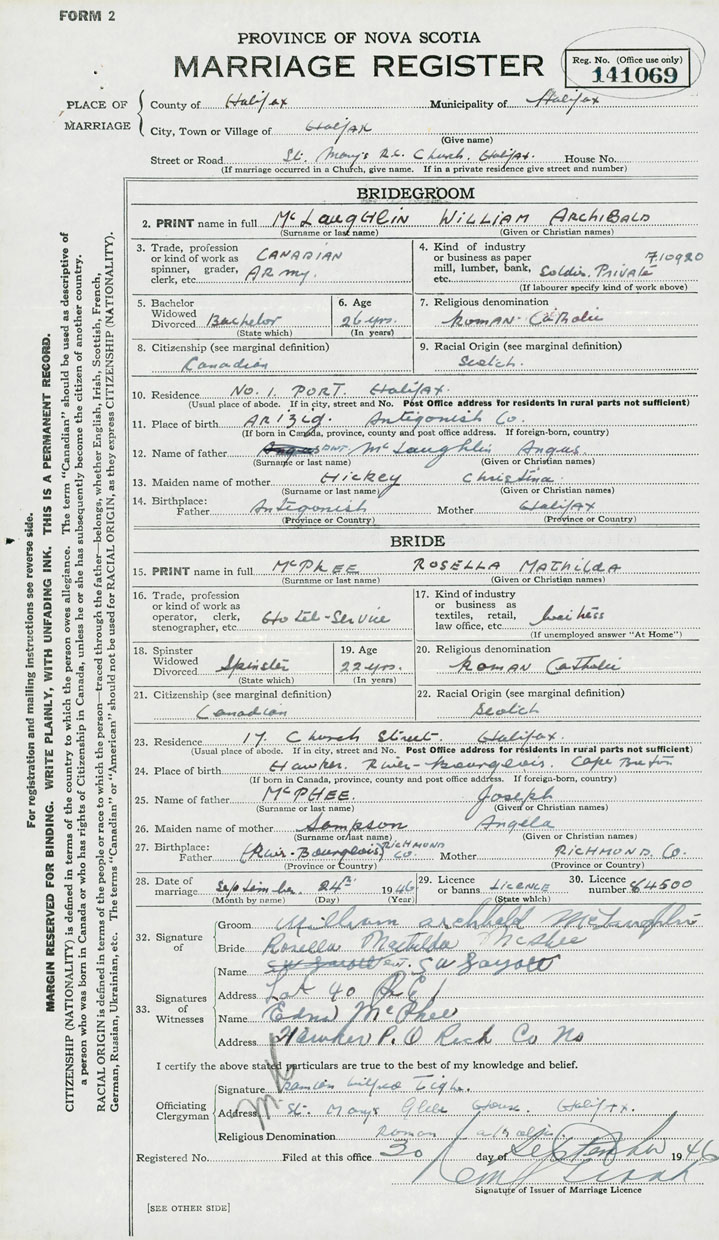 FORM 2
PROVINCE OF NOVA SCOTIA
MARRIAGE REGISTER
Reg. No. (Office use only)
141069
PLACE OF MARRIAGE
County of Halifax Municipality of Halifax
City, Town or Village of Halifax
(Give name)
Street or Road St. Mary's R.C. Church, Halifax. House No.
(If marriage occurred in a Church, give name. If in a private residence give street and number)
BRIDEGROOM
2. PRINT name in full McLaughlin William Archibald
(Surname or last name) (Given or Christian names)
3. Trade, profession or kind of work as spinner, grader, clerk, etc. Canadian Army.
4. Kind of industry or business as paper mill, lumber, bank, etc. Soldier. Private 710920
(If labourer specify kind of work above)
5. Bachelor Widowed Divorced Bachelor
(State which)
6. Age 26 yrs.
(In years)
7. Religious denomination Roman Catholic
8. Citizenship (see marginal definition) Canadian
9. Racial Origin (see marginal definition) Scotch.
10. Residence No. 1. Port. Halifax.
(Usual place of abode. If in city, street and No. Post Office address for residents in rural parts not sufficient)
11. Place of birth Arisig. Antigonish Co.
(If born in Canada, province, county and post office address. If foreign-born, country)
12. Name of father McLaughlin Angus
(Surname or last name) (Given or Christian names)
13. Maiden name of mother Hickey Christina
(Surname or last name) (Given or Christian names)
14. Birthplace: Father Antigonish Mother Halifax
(Province or Country) (Province or Country)
BRIDE
15. PRINT name in full McPhee Rosella Mathilda
(Surname or last name) (Given or Christian names)
16. Trade, profession or kind of work as operator, clerk, stenographer, etc. Hotel-Service
17. Kind of industry or business as textiles, retail, law office, etc. Waitress
(If unemployed answer "At Home")
18. Spinster Widowed Divorced Spinster
(State which)
19. Age 22 yrs.
(In years)
20. Religious denomination Roman Catholic
21. Citizenship (see marginal definition) Canadian
22. Racial Origin (see marginal definition) Scotch
23. Residence 17. Church Street. Halifax.
(Usual place of abode. If in city, street and No. Post Office address for residents in rural parts not sufficient)
24. Place of birth Hawker. River-Bourgeois. Cape Breton
(If born in Canada, province, county and post office address. If foreign-born, country)
25. Name of father McPhee. Joseph
(Surname or last name) (Given or Christian names)
26. Maiden name of mother Sampson Angela
(Surname or last name) (Given or Christian names)
27. Birthplace: Father (River-Bourgeois) Richmond Co. Mother Richmond. Co.
(Province or Country) (Province or Country)
28. Date of marriage September 24th 1946
(Month by name) (Day) (Year)
29. Licence or banns Licence
(State which)
30. Licence number 84500
32. Signature of
Groom William Archibald McLaughlin
Bride Rosella Mathilda McPhee
33. Signatures of Witnesses
Name
Address Lot 40 P.E.I
Name Edna McPhee
Address Hawker P.O Rich Co NS
I certify the above stated particulars are true to the best of my knowledge and belief.
Officiating Clergyman
Signature Francis Wilfred
Address St. Mary's Glebe House. Halifax.
Religious Denomination Roman Catholic
Registered No. Filed at this office 30 day of September 1946
Signature of Issuer of Marriage Licence
[SEE OTHER SIDE]
For registration and mailing instructions see reverse side.
MARGIN RESERVED FOR BINDING. WRITE PLAINLY, WITH UNFADING INK. THIS IS A PERMANENT RECORD.
CITIZENSHIP (NATIONALITY) is defined in terms of the country to which the person owes allegiance. The term "Canadian" should be used as descriptive of
a person who was born in Canada or who has rights of Citizenship in Canada, unless he or she has subsequently become the citizen of another country.
RACIAL ORIGIN is defined in terms of the people or race to which the person—traced through the father—belongs, whether English, Irish, Scottish, French,
German, Russian, Ukrainian, etc. The terms "Canadian" or "American" should not be used for RACIAL ORIGIN, as they express CITIZENSHIP (NATIONALITY).